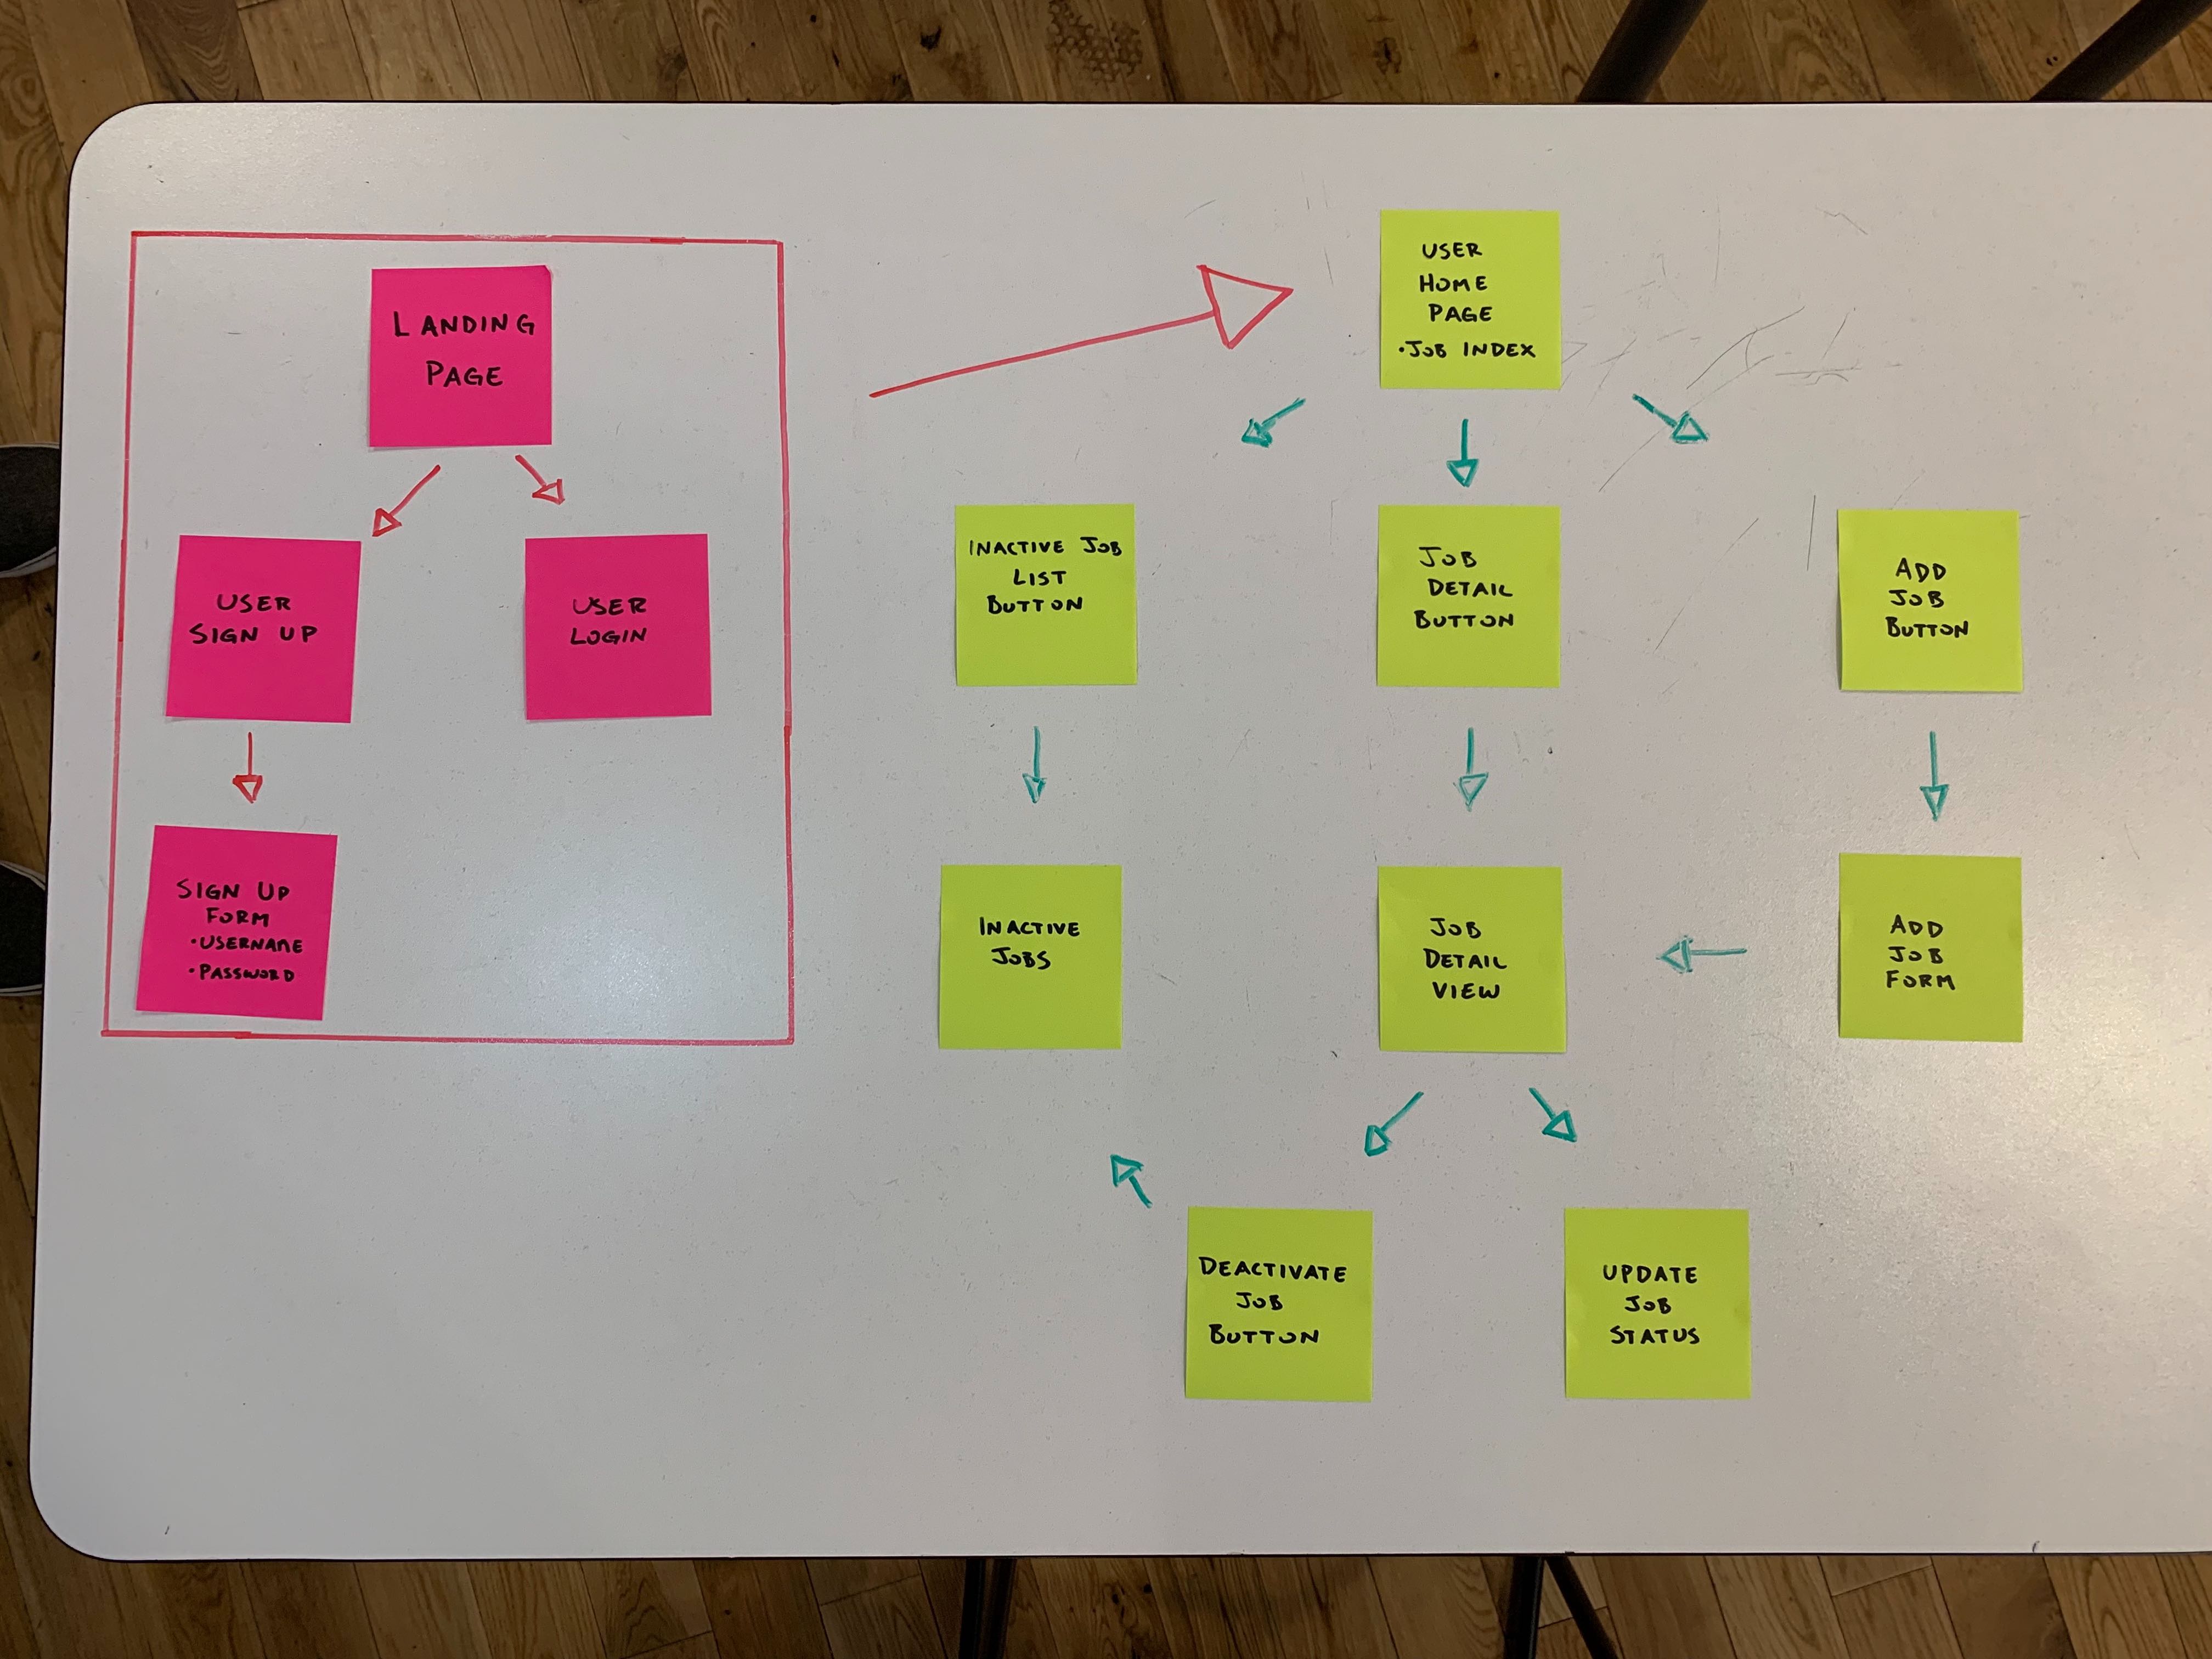 LANDING
PAGE
USER
SIGN UP
USER
LOGIN
SIGN UP
FORM
• USERNAME
• PASSWORD
USER
HOME
PAGE
• JOB INDEX
INACTIVE JOB
LIST
BUTTON
JOB
DETAIL
BUTTON
ADD
JOB
BUTTON
INACTIVE
JOBS
JOB
DETAIL
VIEW
ADD
JOB
FORM
DEACTIVATE
JOB
BUTTON
UPDATE
JOB
STATUS